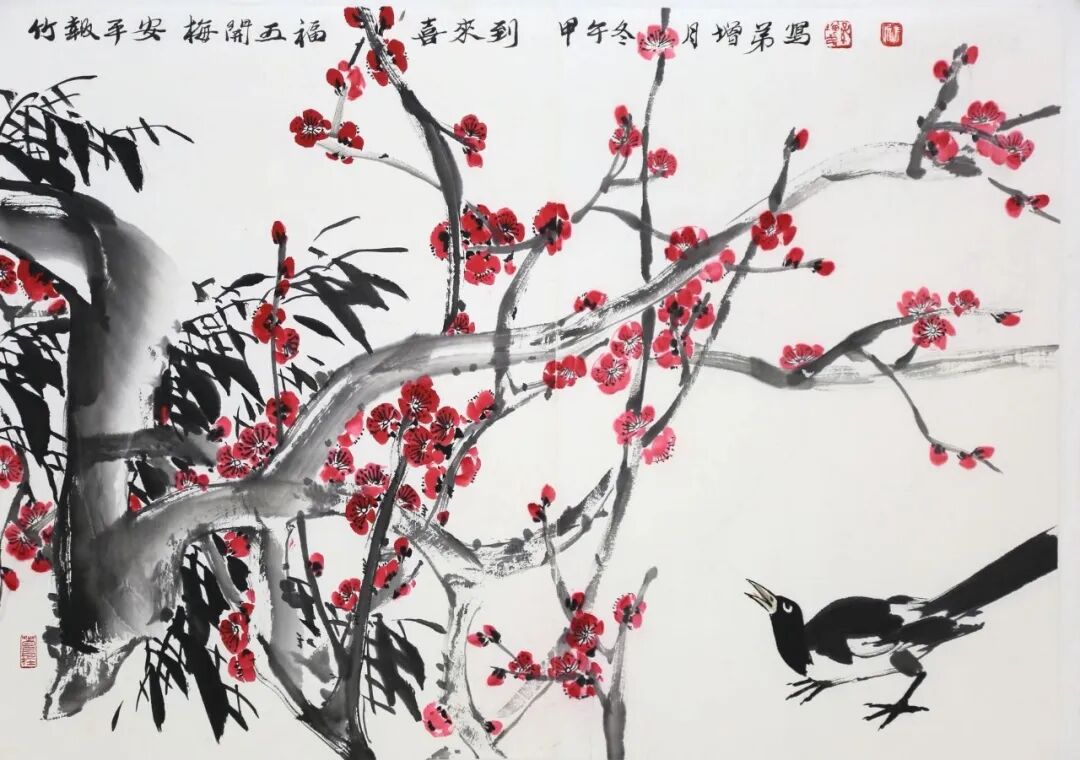 竹報平安 梅開五福 喜來到 甲午冬月增弟寫